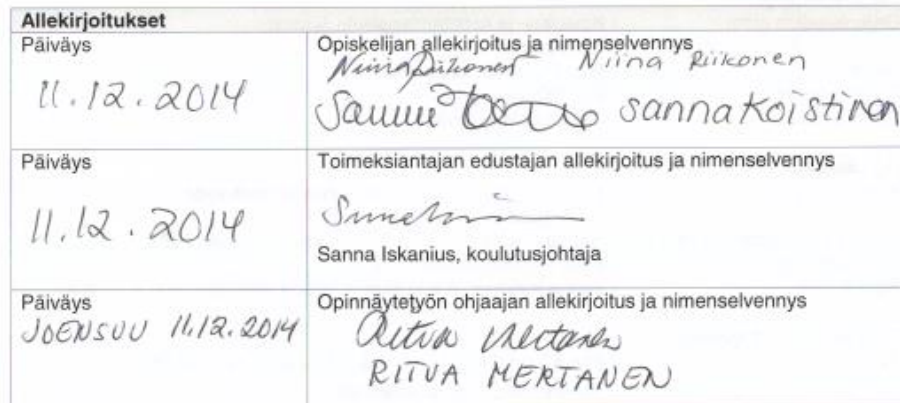 Allekirjoitukset
Päiväys
11.12.2014
Opiskelijan allekirjoitus ja nimenselvennys
Niina Riikonen Niina Riikonen
Sanna sanna Koistinen
Päiväys
11.12.2014
Toimeksiantajan edustajan allekirjoitus ja nimenselvennys
Sanna Iskanius, koulutusjohtaja
Päiväys
JOENSUU 11.12.2014
Opinnäytetyön ohjaajan allekirjoitus ja nimenselvennys
Ritva Mertanen
RITVA MERTANEN